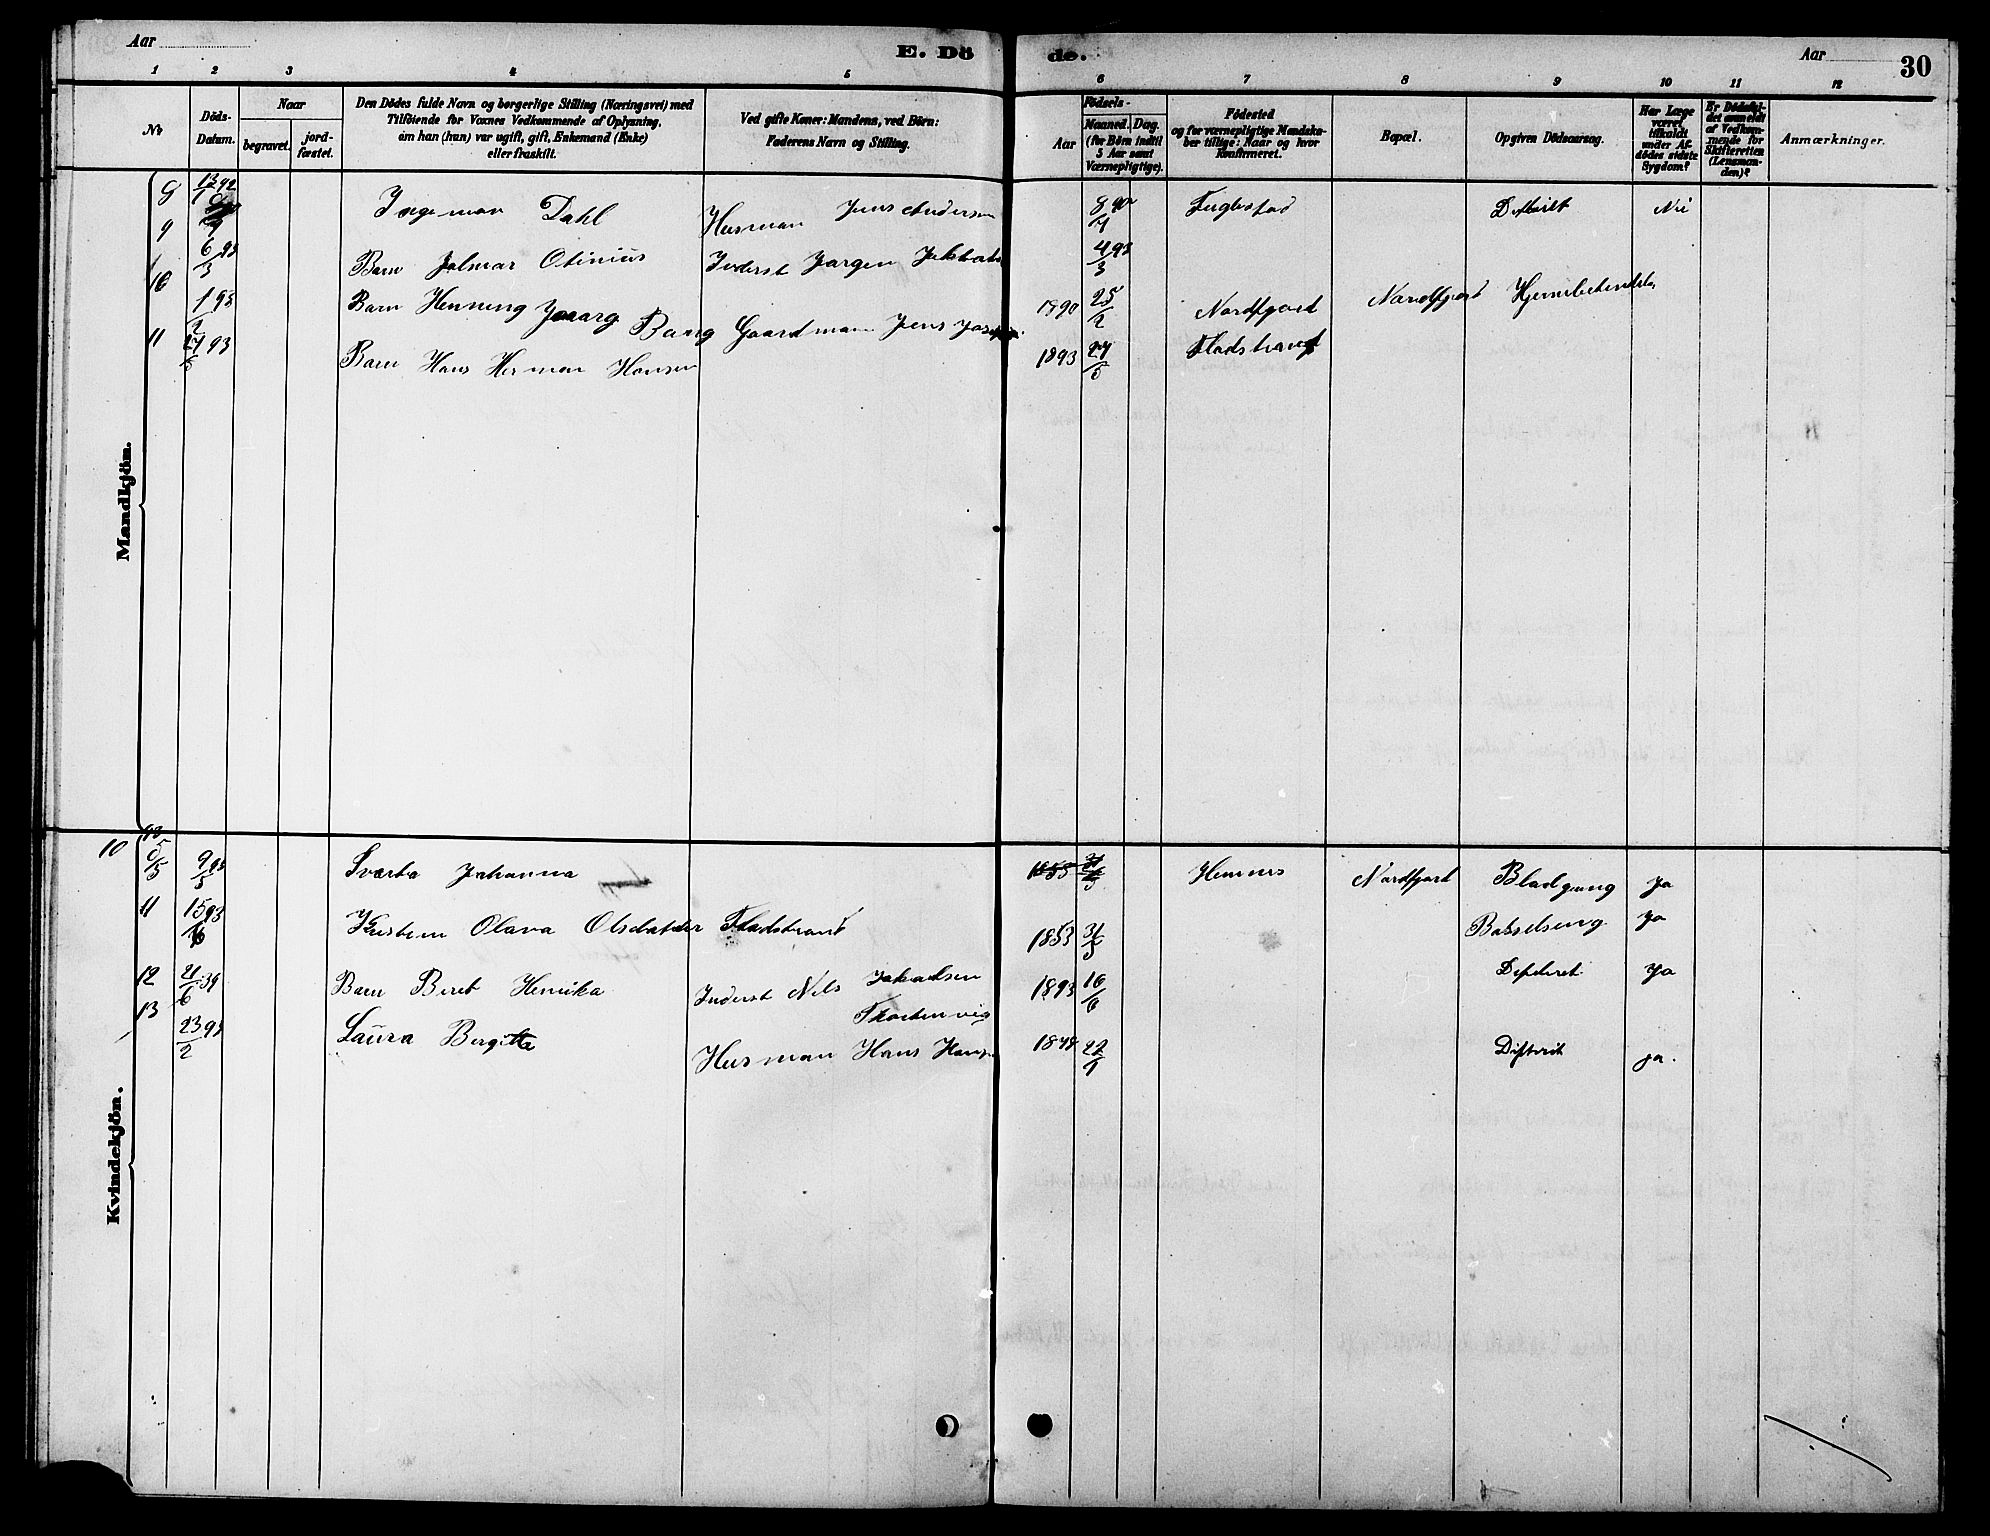 Aar
E. Dö
de.
Aar
30
1 2 3 4 5 6 7 8 9 10 11 12
No
Döds-
Datum.
Naar
begravet.
jord-
fæstet.
Den Dödes fulde Navn og borgerlige Stilling (Næringsvei) med
Tilföiende for Voxnes Vedkommende af Oplysning,
om han (hun) var ugift, gift, Enkemand (Enke)
eller fraskilt.
Ved gifte Koner: Mandens, ved Börn:
Faderens Navn og Stilling.
Aar
Födsels-
Maaned. Dag.
(for Börn indtil
5 Aar samt
Værnepligtige).
Födested
og for værnepligtige Mandska-
ber tillige: Naar og hvor
konfirmeret.
Bopæl.
Opgiven Dödsaarsag.
Har Læge
været
tilkaldt
under Af-
dödes sidste
Sygdom?
Er Dödsfal-
det anmeldt
af Vedkom-
mende for
Skifteretten
(Lensman-
den)?
Anmærkninger.
Mandkjön.
8 13/1 92 Ingeman Dahl Husman Jens Andersen Fuglestad Difterit Nei
9 6/3 93 Barn Jalmar Otinius Inderst Jørgen 4/3 93
10 1 93 Barn Henning Bang Gaardman Jens 1890 25/2 Nordfjord Nordfjord
11 93 Barn Hans Herman Hansen 1893 27/5 Fladstrand
Kvindekjön.
10 9/5 93 Sværta Johanna 1853 Hemnes Nordfjord Blodgang Ja
11 15 93 Kristine Olava Olsdatter Fladstrand 1853 31/5 Barselseng Ja
12 21/6 Barn Beret Henrika Inderst Nils Jakobsen 1893 16/6 Ja
13 23/2 93 Laura Bergitte Husman Hans 1848 22/1 Difterit ja.